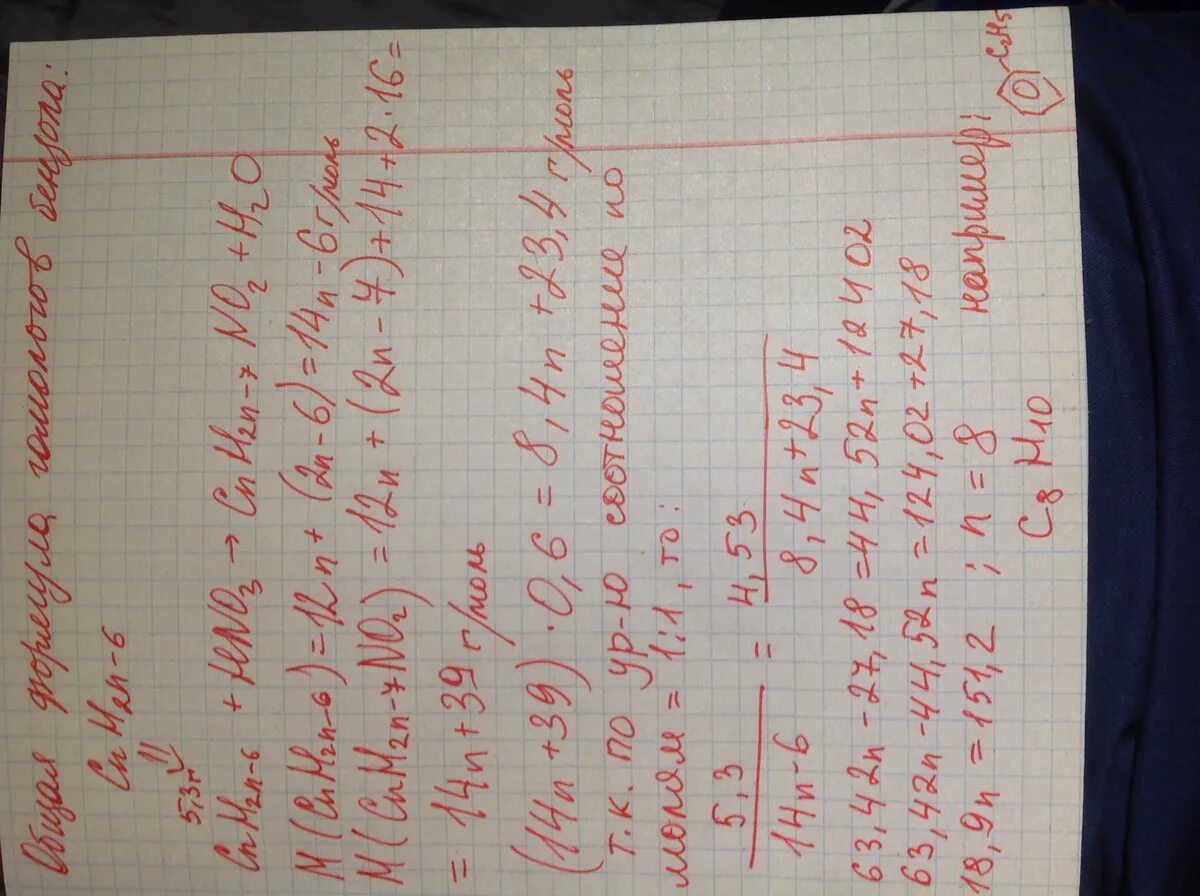 Общая формула гомологов бензола:
CnH2n-6
5,3г 11
CnH2n-6 + HNO3 → CnH2n-7 NO2 + H2O
M(CnH2n-6) = 12n + (2n-6) = 14n-6 г/моль
M(CnH2n-7NO2) = 12n + (2n-7) + 14 + 2·16 =
= 14n + 39 г/моль
(14n + 39) · 0,6 = 8,4n + 23,4 г/моль
т.к. по ур-ю соотношение по
молям = 1:1, то:
5,3 / 14n-6 = 4,53 / 8,4n+23,4
63,42n - 27,18 = 44,52n + 124 02
63,42n - 44,52n = 124,02 + 27,18
18,9n = 151,2 ; n = 8 например:
C8H10 C2H5